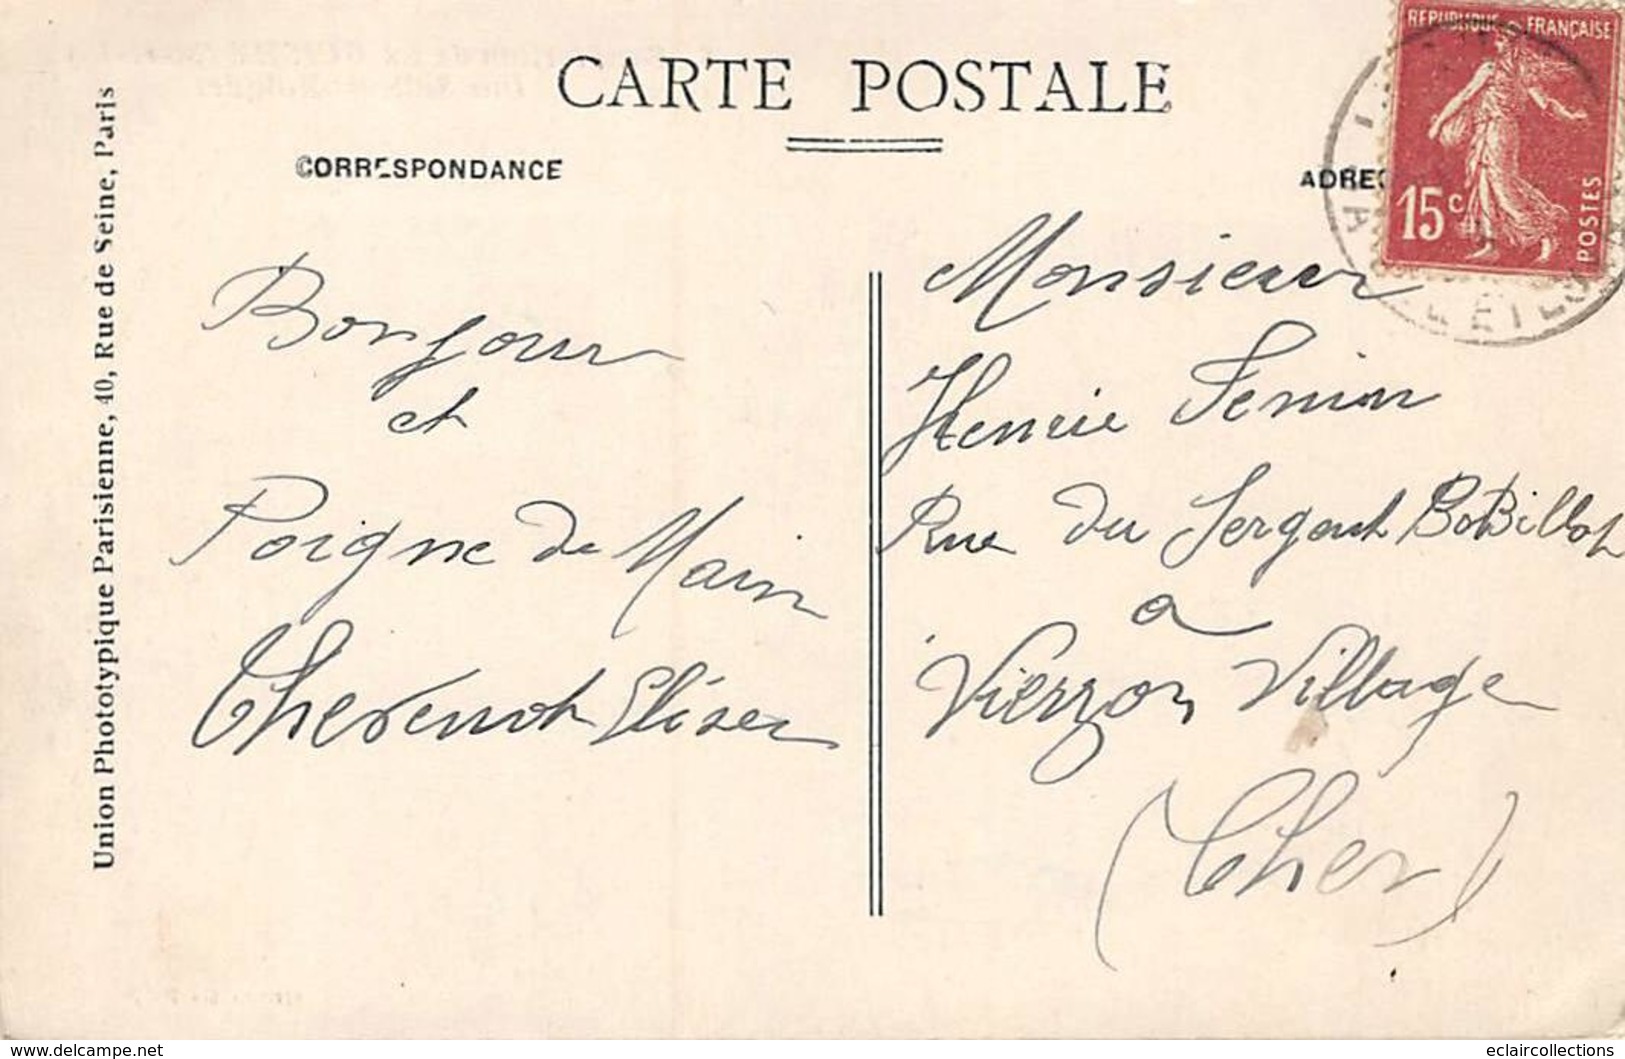 CARTE POSTALE
CORRESPONDANCE
ADRES
REPUBLIQUE FRANÇAISE
15c
POSTES
Union Phototypique Parisienne, 40, Rue de Seine, Paris
Bonjour
et
Poigne de Main
Thevenot Eliser
Monsieur
Henrie Fenion
Rue du Sergent BoBillot
a
Vierzon Village
(Cher)
www.delcampe.net
eclaircollections